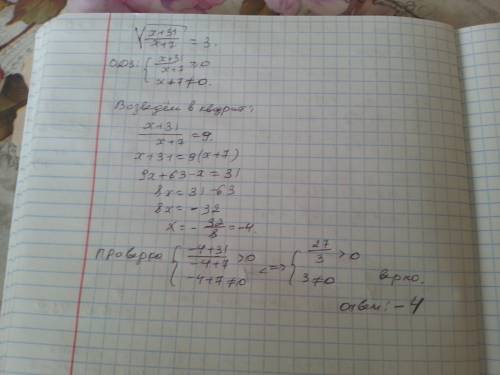 √(x+31 / x+7) = 3.
ОДЗ: { x+31 / x+7 ≥ 0
x+7 ≠ 0.
Возведём в квадрат:
x+31 / x+7 = 9.
x+31 = 9(x+7)
9x+63-x = 31
8x = 31-63
8x = -32
x = -32/8 = -4.
Проверка { -4+31 / -4+7 > 0 <=> { 27/3 > 0
-4+7 ≠ 0 3 ≠ 0 верно.
ответ: -4